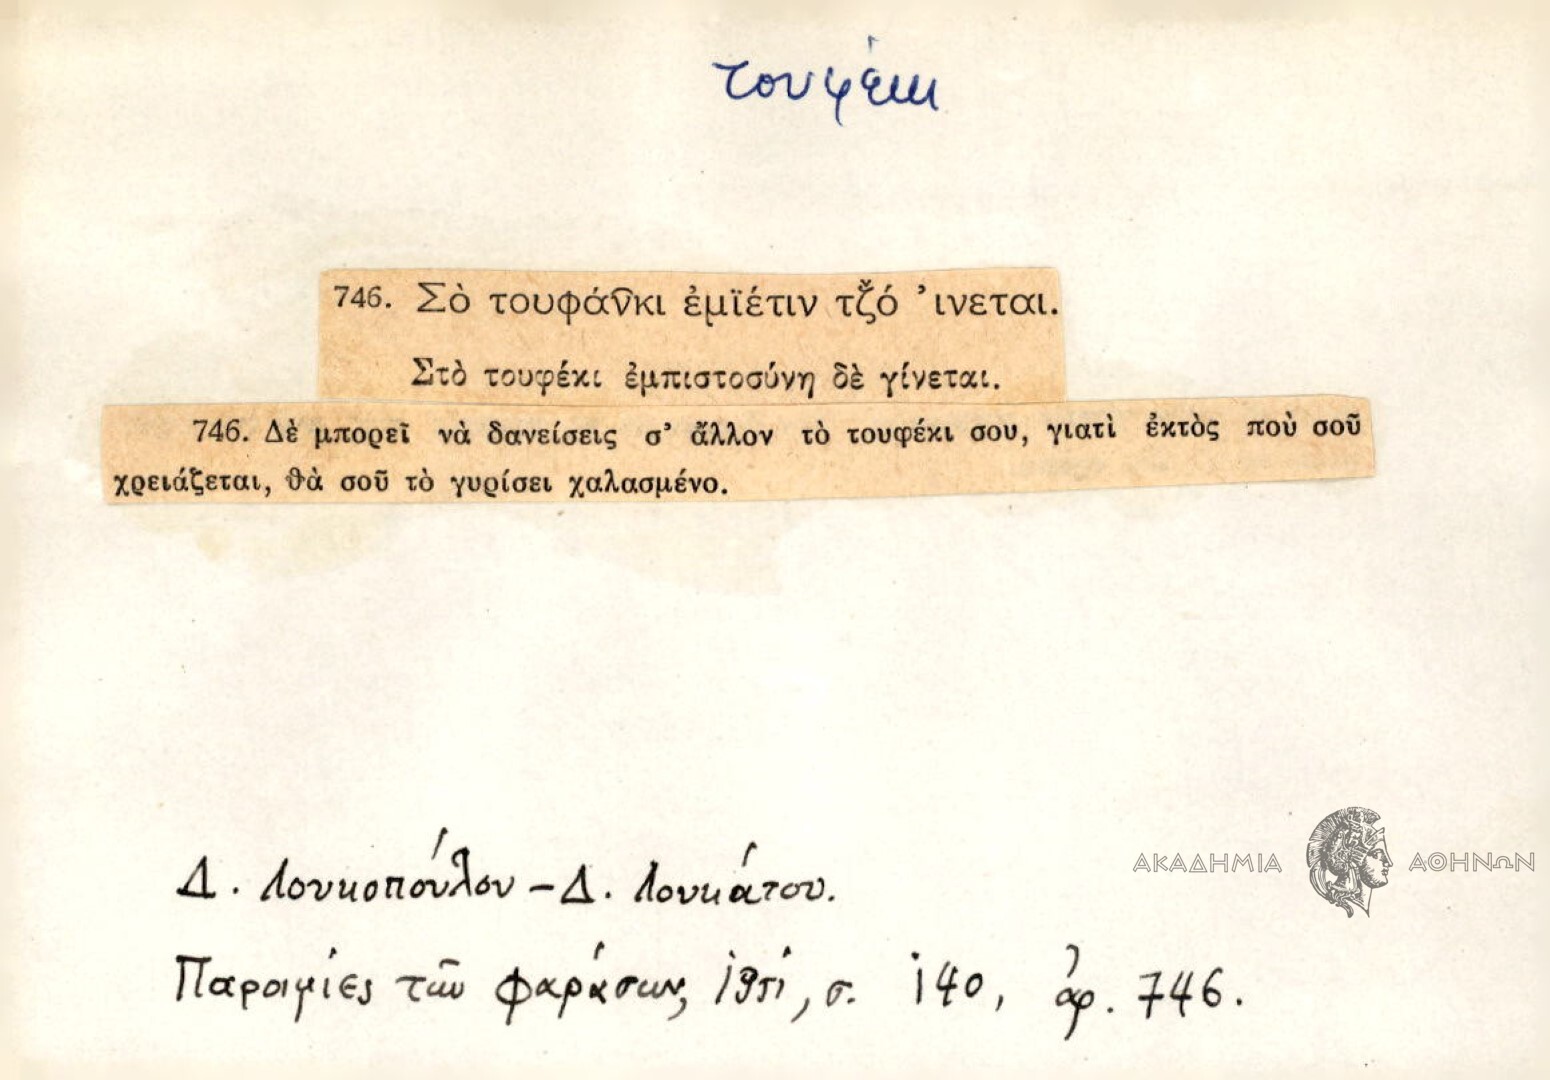 τουφέκι
746. Σὸ τουφάν̑κι ἐμϊέτιν τζ̌ό ᾿ινεται.
Στὸ τουφέκι ἐμπιστοσύνη δὲ γίνεται.
746. Δὲ μπορεῖ νὰ δανείσεις σ’ ἄλλον τὸ τουφέκι σου, γιατὶ ἐκτὸς ποὺ σοῦ
χρειάζεται, θὰ σοῦ τὸ γυρίσει χαλασμένο.
ΑΚΑΔΗΜΙΑ ΑΘΗΝΩΝ
Δ. Λουκοπούλου – Δ. Λουκάτου.
Παροιμίες τῶν Φαράσων, 1951, σ. 140, ἀρ. 746.